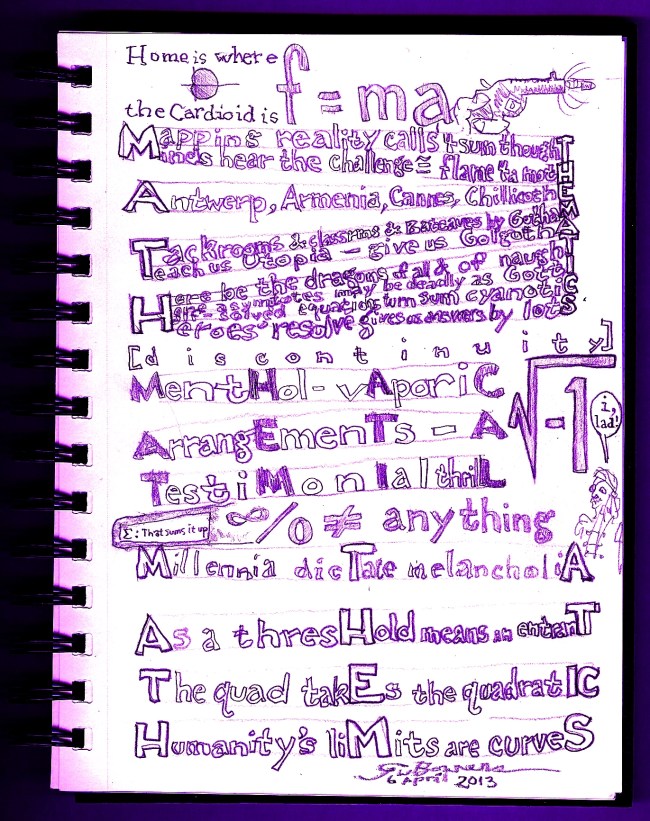 Home is where
the Cardioid is
f = ma
Mapping reality calls 4 sum though
Minds hear the challenge = flame to mot
Antwerp, Armenia, Cannes, Chillicoth
Tackrooms & classrms & Bateaves by Gotha
Teach us Utopia - give us Golgotha
Here be the dragons of all & of naugh
may be deadly as Gott
solved equations turn sum cyanotic
Heroes' resolve gives us answers by lots
THEMATICS
[discontinuity]
MentHol-vAporiC
ArrangEmenTs - A
TestiMonIal thrilL
√-1
i, lad!
Σ: That sums it up
∞/0 ≠ anything
Millennia dicTate melancholiA
As a thresHold means an entranT
The quad takEs the quadratIC
Humanity's liMits are curveS
6 April 2013